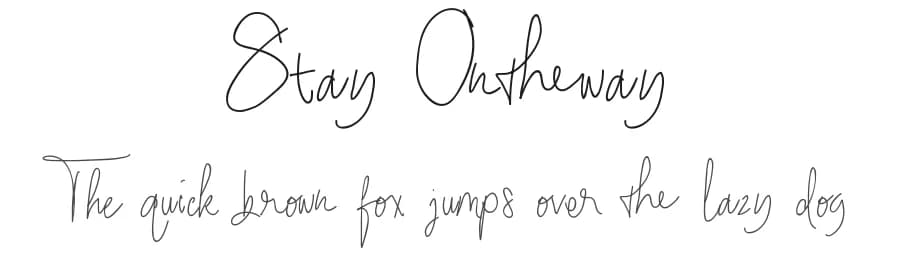 Stay Ontheway
The quick brown fox jumps over the lazy dog